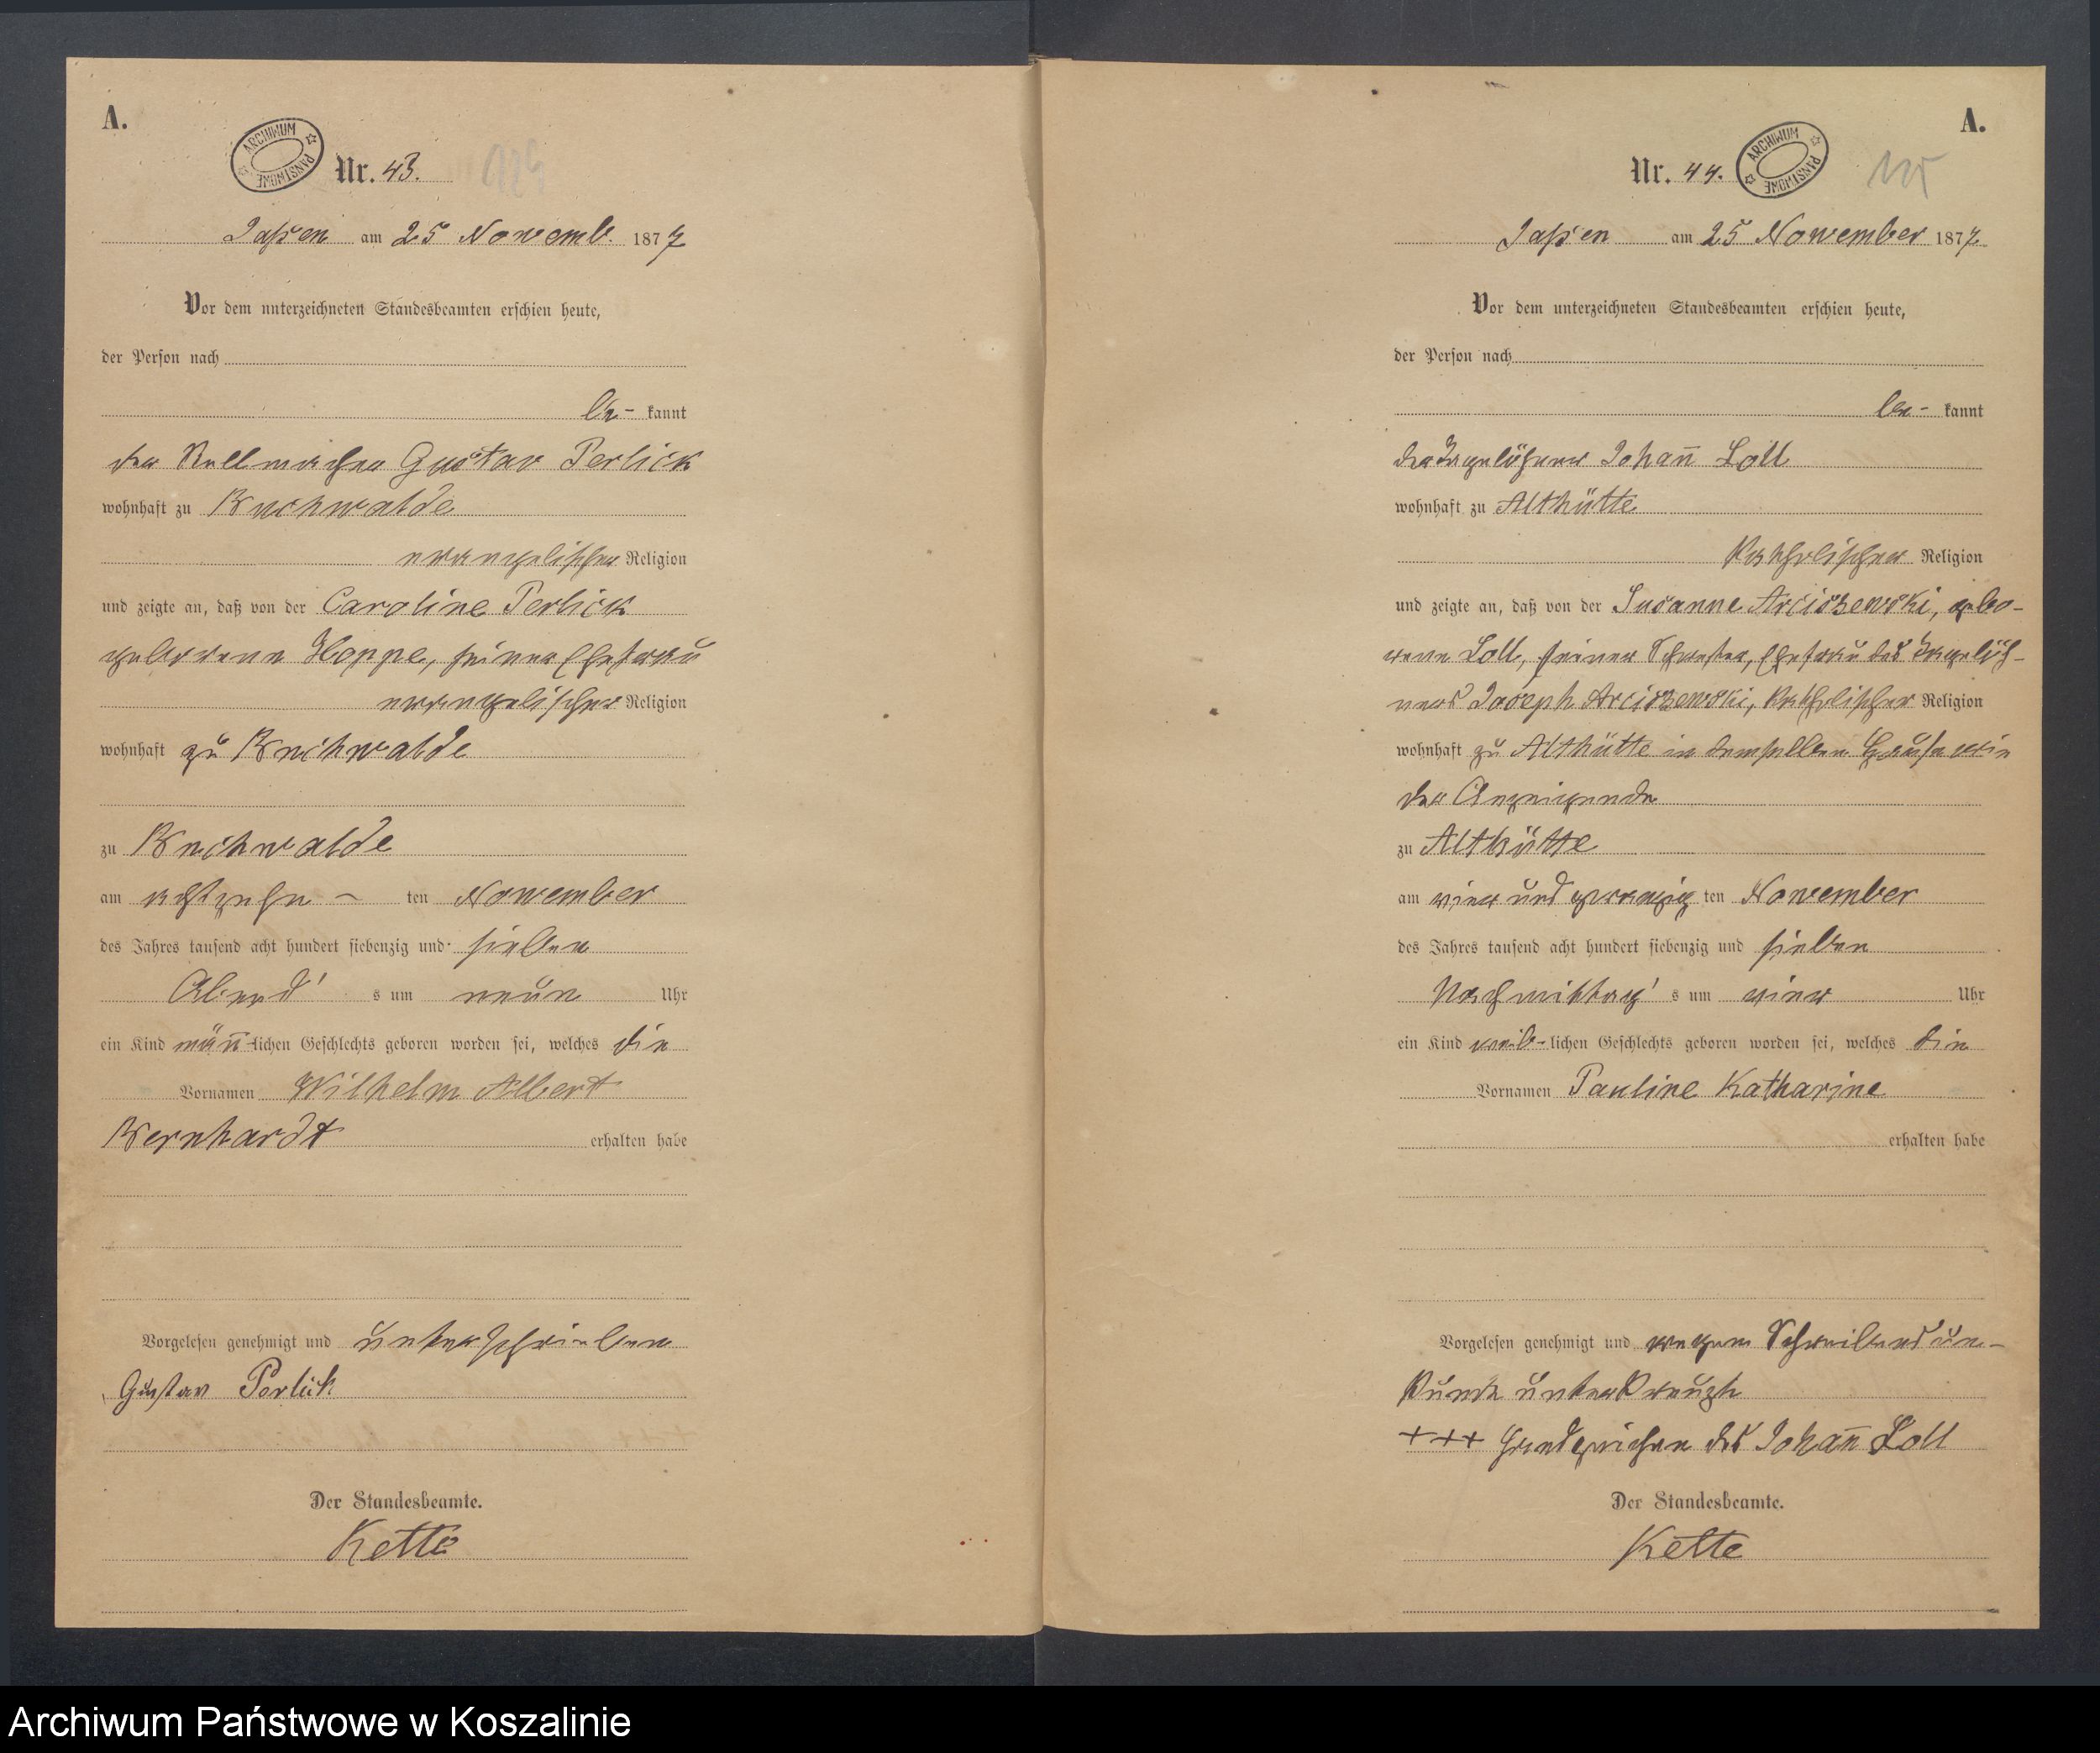 A.
ARCHIWUM PAŃSTWOWE
Nr. 43.
Jaßen am 25 Novemb. 1877
Vor dem unterzeichneten Standesbeamten erschien heute,
der Person nach
be- kannt
der Stellmacher Gustav Perlick
wohnhaft zu Buchwalde
evangelischer Religion
und zeigte an, daß von der Caroline Perlick
geborenen Hoppe, seiner Ehefrau
evangelischer Religion
wohnhaft zu Buchwalde
zu Buchwalde
am achtzehn - ten November
des Jahres tausend acht hundert siebenzig und sieben
Abend's um neun Uhr
ein Kind männ-lichen Geschlechts geboren worden sei, welches die
Vornamen Wilhelm Albert
Bernhardt erhalten habe
Vorgelesen genehmigt und unterschrieben
Gustav Perlick
Der Standesbeamte.
Kette
A.
Nr. 44.
ARCHIWUM PAŃSTWOWE
Jaßen am 25 November 1877
Vor dem unterzeichneten Standesbeamten erschien heute,
der Person nach
be- kannt
der Tagelöhner Johan̅ Loll
wohnhaft zu Althütte
Katholischer Religion
und zeigte an, daß von der Susanne Arciszewski, gebo-
rene Loll, seiner Schwester, Ehefrau des Tagelöh-
ners Joseph Arciszewski, katholischer Religion
wohnhaft zu Althütte in demselben Hause wie
der Anzeigende
zu Althütte
am vier und zwanzig ten November
des Jahres tausend acht hundert siebenzig und sieben
Nachmittag's um vier Uhr
ein Kind weib-lichen Geschlechts geboren worden sei, welches die
Vornamen Pauline Katharine
erhalten habe
Vorgelesen genehmigt und wegen Schreibens un-
kunde unterkreuzt
+++ Handzeichen des Johan̅ Loll
Der Standesbeamte.
Kette
Archiwum Państwowe w Koszalinie